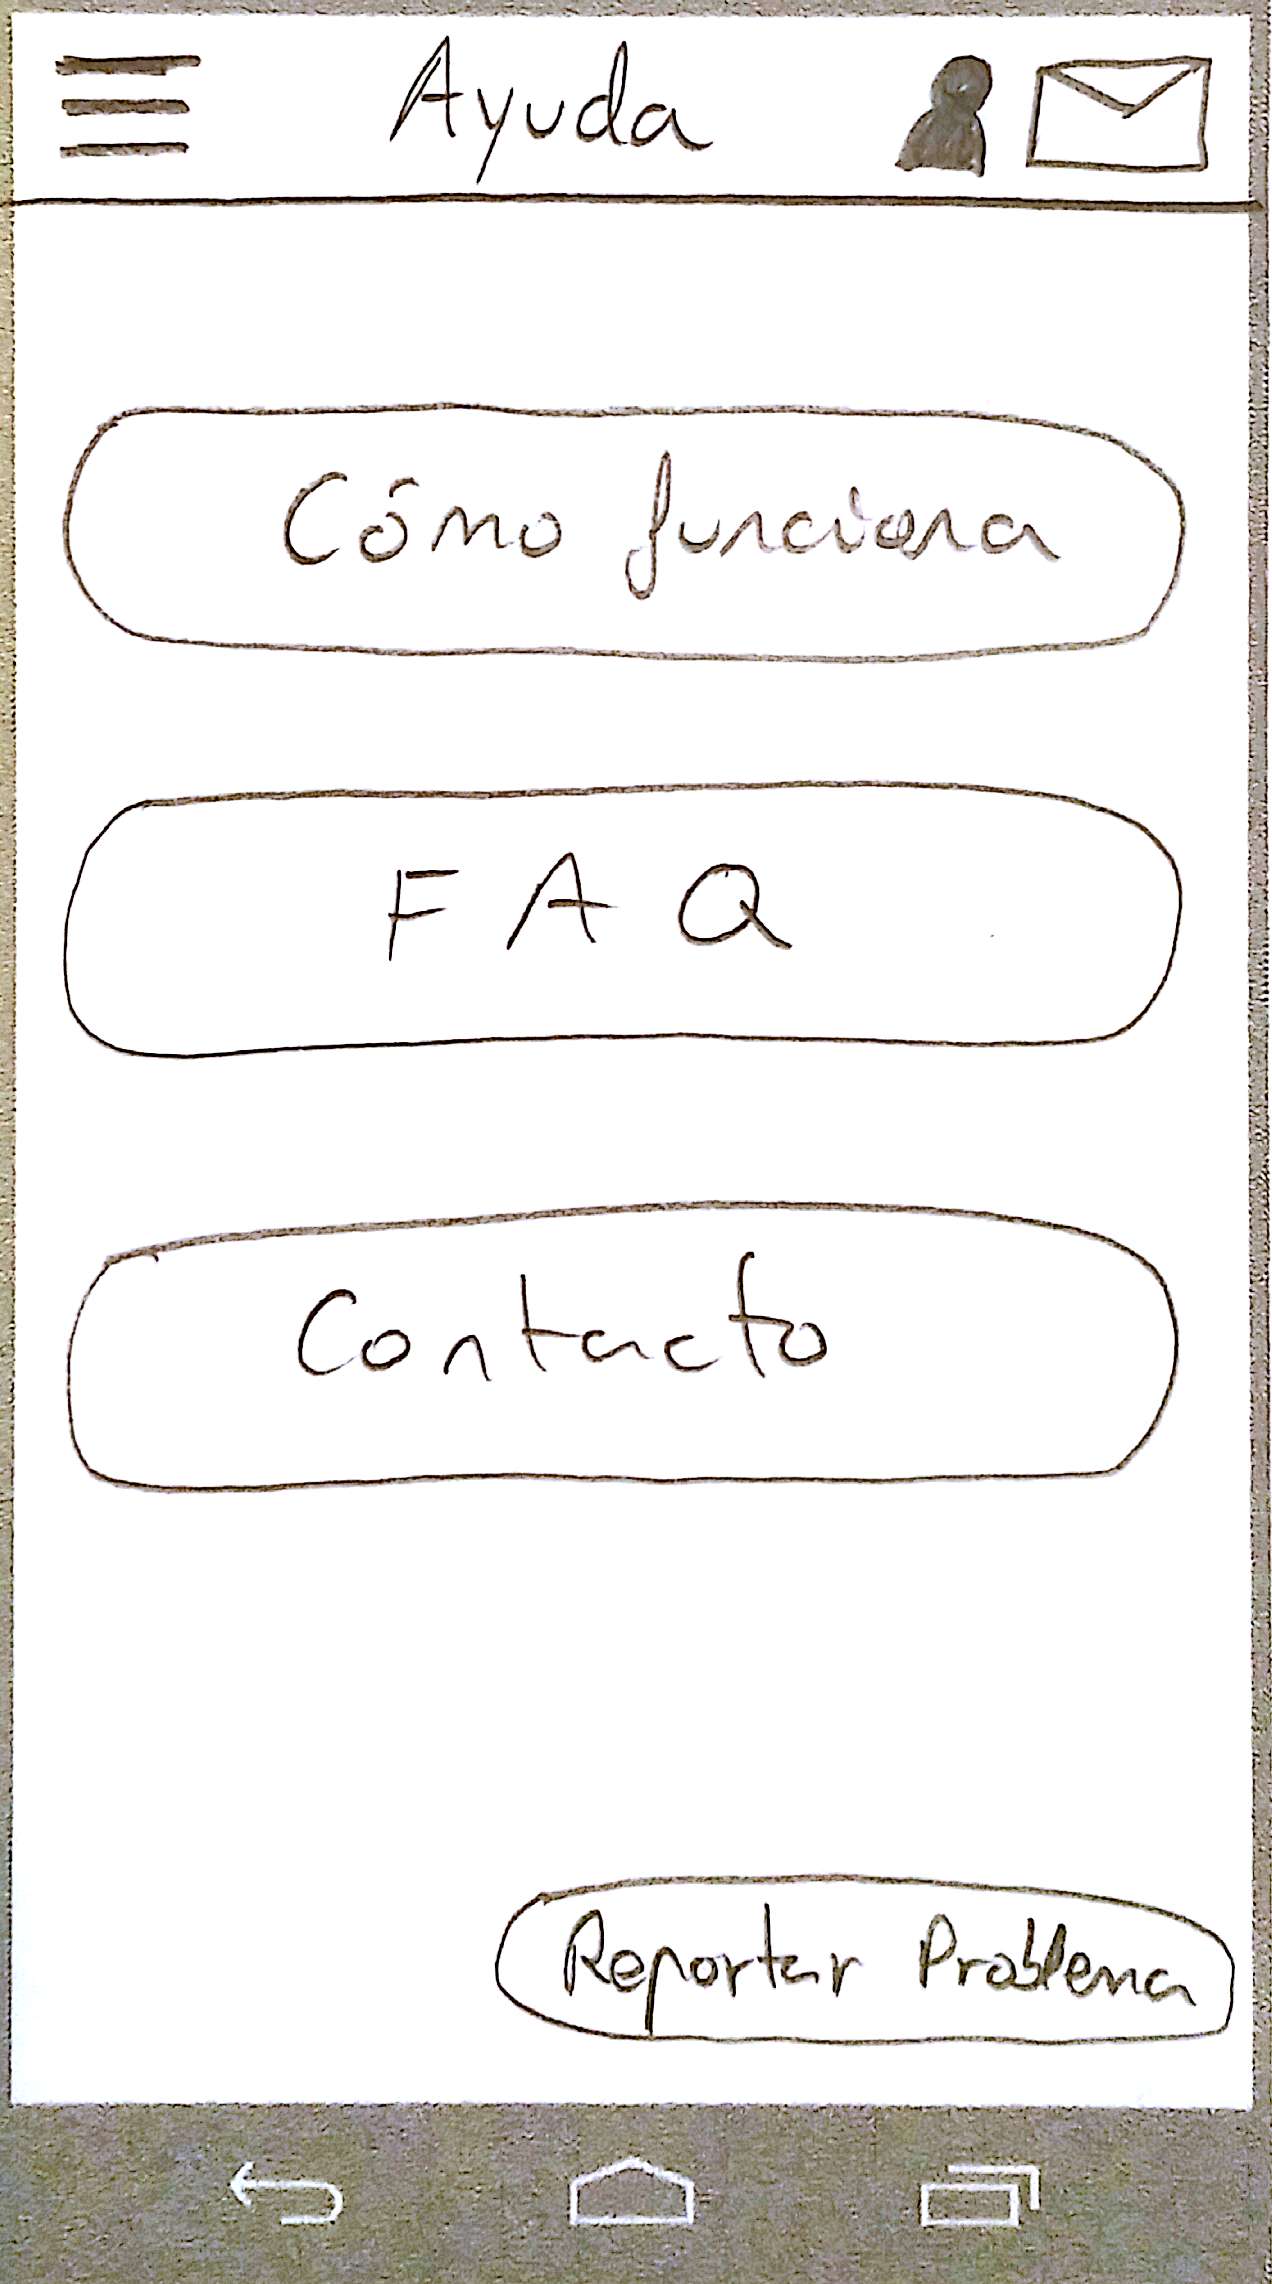 Ayuda
Cómo funciona
FAQ
Contacto
Reportar Problema